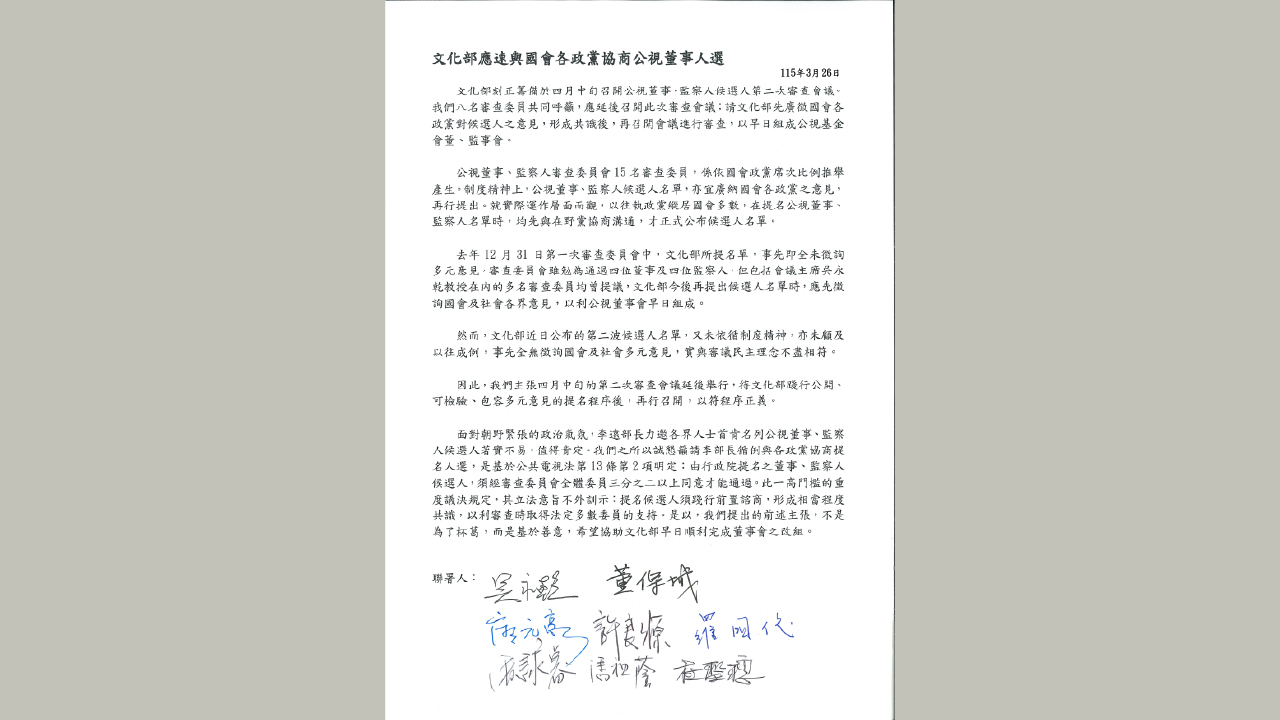 文化部應速與國會各政黨協商公視董事人選
115年3月26日
文化部刻正籌備於四月中旬召開公視董事、監察人候選人第二次審查會議。
我們八名審查委員共同呼籲，應延後召開此次審查會議；請文化部先廣徵國會各
政黨對候選人之意見，形成共識後，再召開會議進行審查，以早日組成公視基金
會董、監事會。
公視董事、監察人審查委員會15名審查委員，係依國會政黨席次比例推舉
產生。制度精神上，公視董事、監察人候選人名單，亦宜廣納國會各政黨之意見，
再行提出。就實際運作層面而觀，以往執政黨縱居國會多數，在提名公視董事、
監察人名單時，均先與在野黨協商溝通，才正式公布候選人名單。
去年12月31日第一次審查委員會中，文化部所提名單，事先即全未徵詢
多元意見。審查委員會雖勉為通過四位董事及四位監察人，但包括會議主席吳永
乾教授在內的多名審查委員均曾提議，文化部今後再提出候選人名單時，應先徵
詢國會及社會各界意見，以利公視董事會早日組成。
然而，文化部近日公布的第二波候選人名單，又未依循制度精神，亦未顧及
以往成例，事先全無徵詢國會及社會多元意見，實與審議民主理念不盡相符。
因此，我們主張四月中旬的第二次審查會議延後舉行，待文化部踐行公開、
可檢驗、包容多元意見的提名程序後，再行召開，以符程序正義。
面對朝野緊張的政治氣氛，李遠部長力邀各界人士首肯名列公視董事、監察
人候選人若實不易，值得肯定。我們之所以誠懇籲請李部長循例與各政黨協商提
名人選，是基於公共電視法第13條第2項明定：由行政院提名之董事、監察人
候選人，須經審查委員會全體委員三分之二以上同意才能通過。此一高門檻的重
度議決規定，其立法意旨不外訓示：提名候選人須踐行前置諮商，形成相當程度
共識，以利審查時取得法定多數委員的支持。是以，我們提出的前述主張，不是
為了杯葛，而是基於善意，希望協助文化部早日順利完成董事會之改組。
聯署人：
吳永乾 董保城
廖元豪 許 羅明